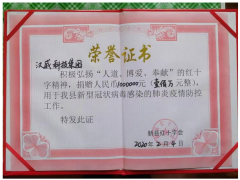 荣誉证书
汉威科技集团
积极弘扬“人道、博爱、奉献”的红十
字精神,捐赠人民币1000000元(壹佰万元整),
用于我县新型冠状病毒感染的肺炎疫情防控
工作。
特发此证
新县红十字会
2020年2月